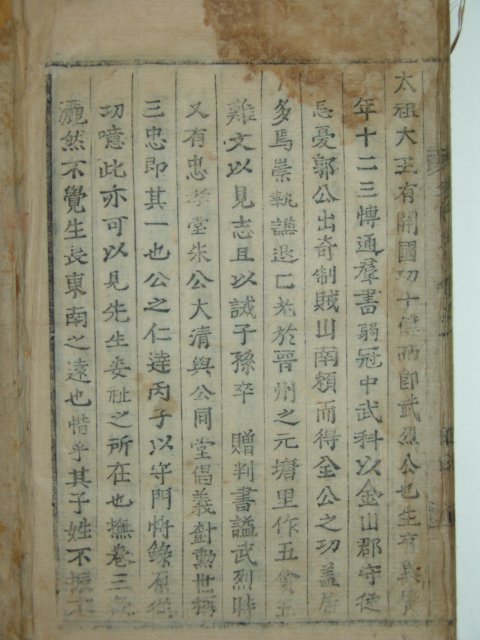 太祖大王有開國功十傳而卽武烈公也生有異質
年十二三博通羣書弱冠中武科以金山郡守從
忘憂郭公出奇制賊山南賴而得全公之功盖居
多焉崇執謙退亡老於晉州之元塘里作五貧五
難文以見志且以誡子孫卒 贈判書謚武烈時
又有忠孝堂朱公大淸與公同堂倡義討勳世稱
三忠卽其一也公之仁達丙子以守門將錄原從
功噫此亦可以見先生委祉之所在也撫卷三
灑然不覺生長東南之遠也惜乎其子姓不振不